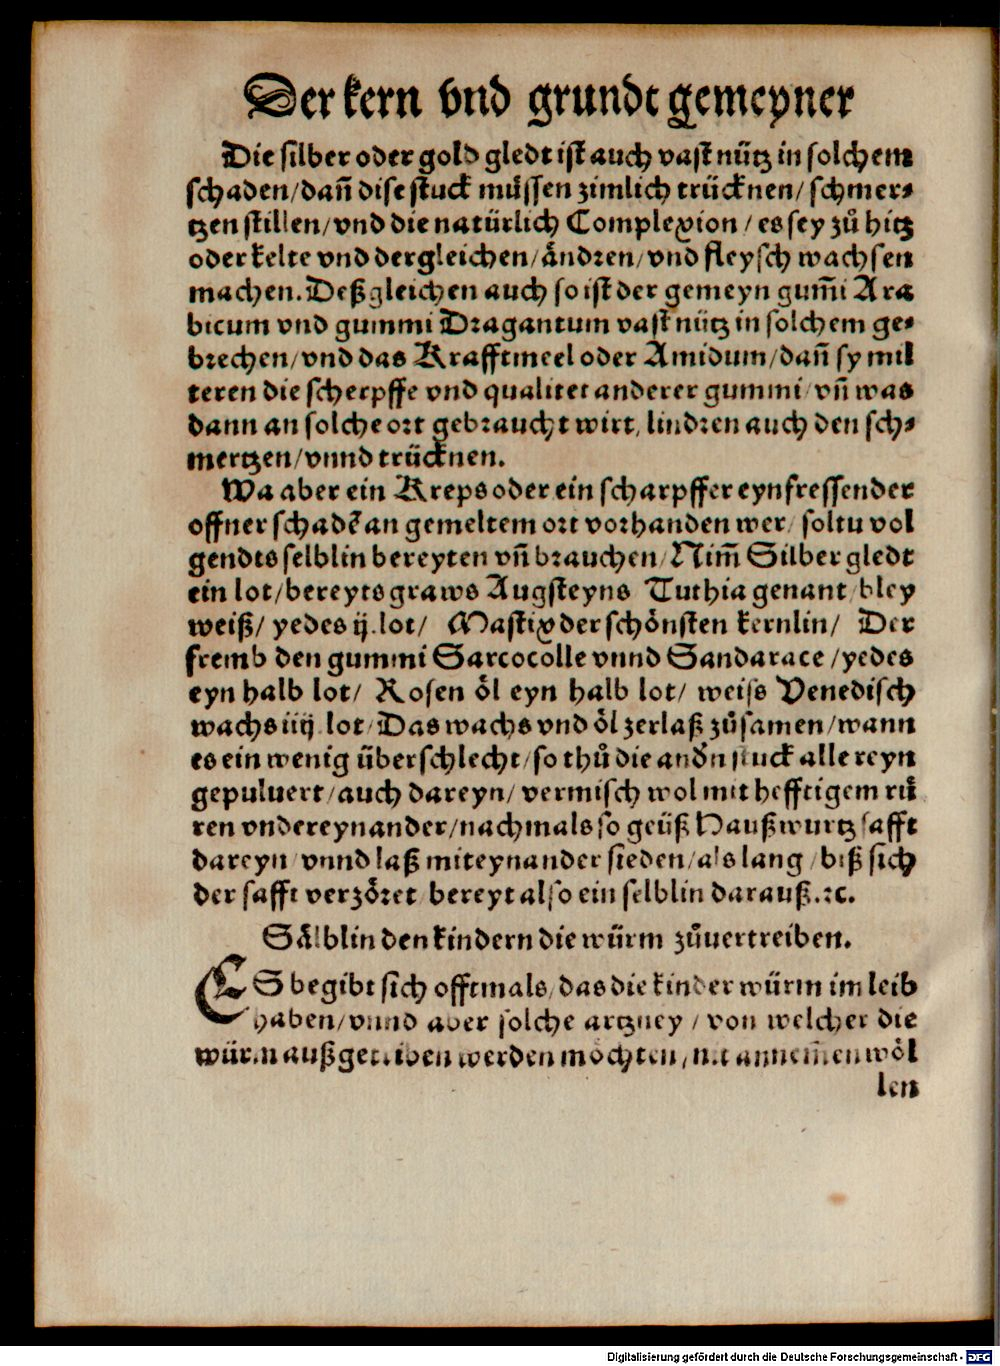 Der kern vnd grundt gemeyner
Die silber oder gold gledt ist auch vast nütz in solchem
schaden/dañ dise stuck müssen zimlich trücknen/schmer-
tzen stillen/vnd die natürlich Complexion/es sey zů hitz
oder kelte vnd dergleichen/åndren/vnd fleysch wachsen
machen. Deßgleichen auch so ist der gemeyn gum̃i Ara
bicum vnd gummi Dragantum vast nütz in solchem ge-
brechen/vnd das Krafftmeel oder Amidum/dañ sy mil
teren die scherpffe vnd qualitet anderer gummi/vñ was
dann an solche ort gebraucht wirt, lindren auch den sch-
mertzen/vnnd trücknen.
Wa aber ein Kreps oder ein scharpffer eynfressender
offner schadẽ an gemeltem ort vorhanden wer/ soltu vol
gendts selblin bereyten vñ brauchen/Nim̃ Silber gledt
ein lot/bereyts graws Augsteyns Tuthia genant/bley
weiß/ yedes ij.lot/ Mastix der schönsten kernlin/ Der
fremb den gummi Sarcocolle vnnd Sandarace/yedes
eyn halb lot/ Rosen öl eyn halb lot/ weiss Venedisch
wachs iiij.lot/Das wachs vnd öl zerlaß zůsamen/wann
es ein wenig überschlecht/so thů die andn stuck alle reyn
gepuluert/auch dareyn/vermisch wol mit hefftigem rü
ren vndereynander/nachmals so geüß Haußwurtz safft
dareyn/vnnd laß miteynander sieden/als lang/biß sich
der safft verzöret/bereyt also ein selblin darauß.ꝛc.
Sälblin den kindern die würm zůuertreiben.
ES begibt sich offtmals/das die kinder würm im leib
haben/vnnd aber solche artzney/von welcher die
würm außgetriben werden möchten/nit annem̃en wöl
len
Digitalisierung gefördert durch die Deutsche Forschungsgemeinschaft - DFG